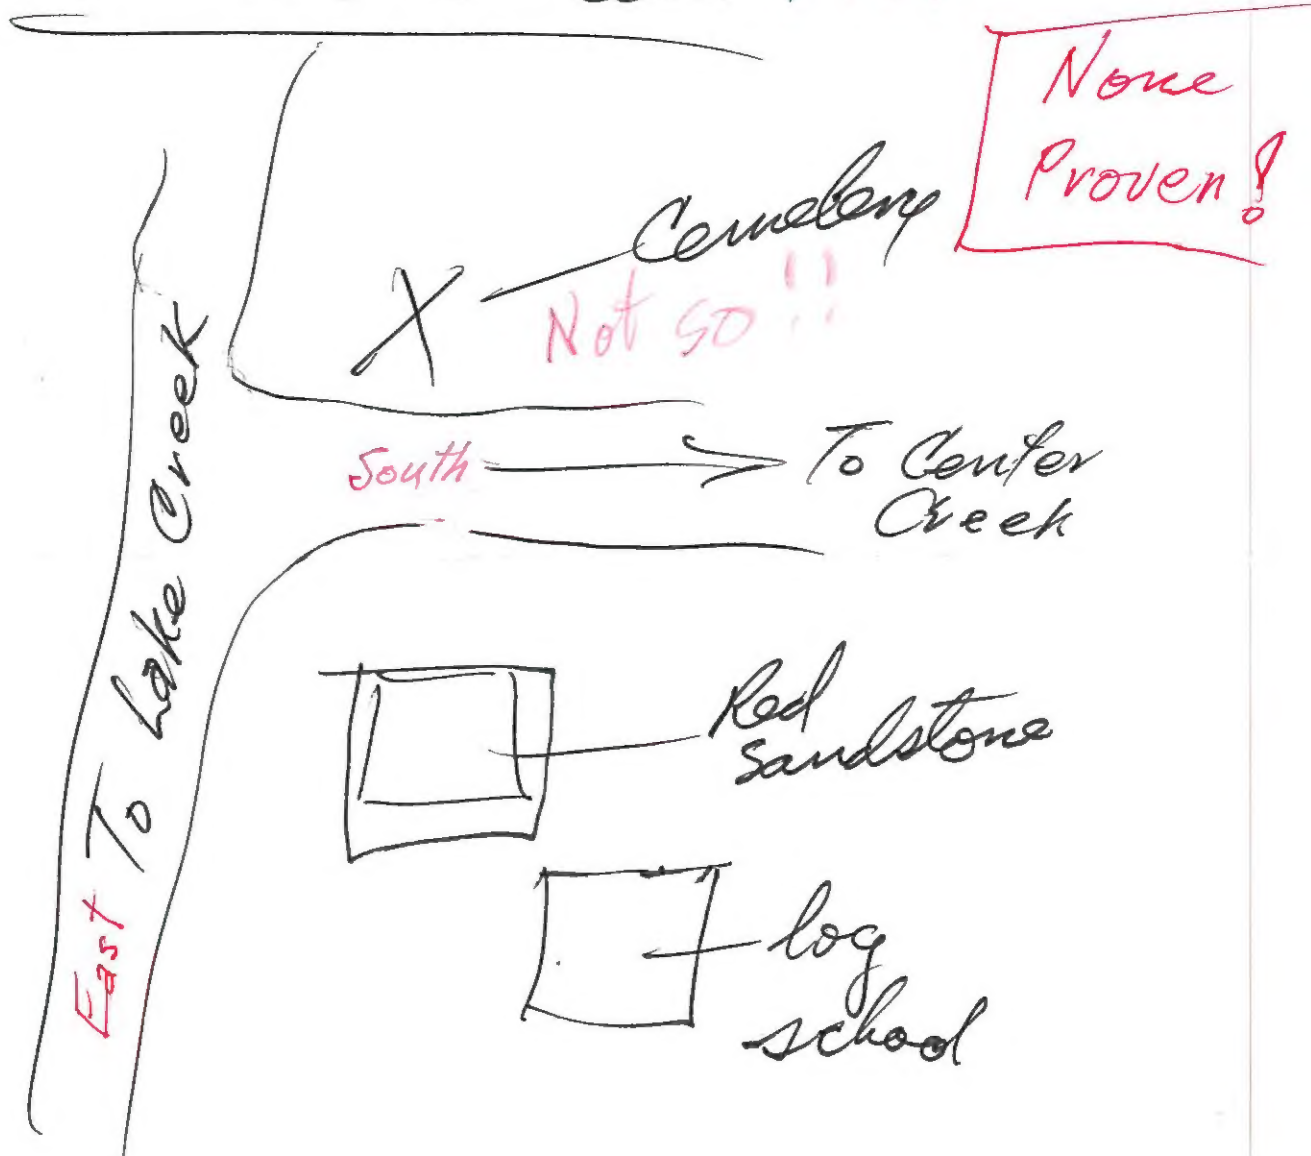 None
Proven!
Cemetery
Not so!!
South
To Center
Creek
East To Lake Creek
Red
Sandstone
log
school